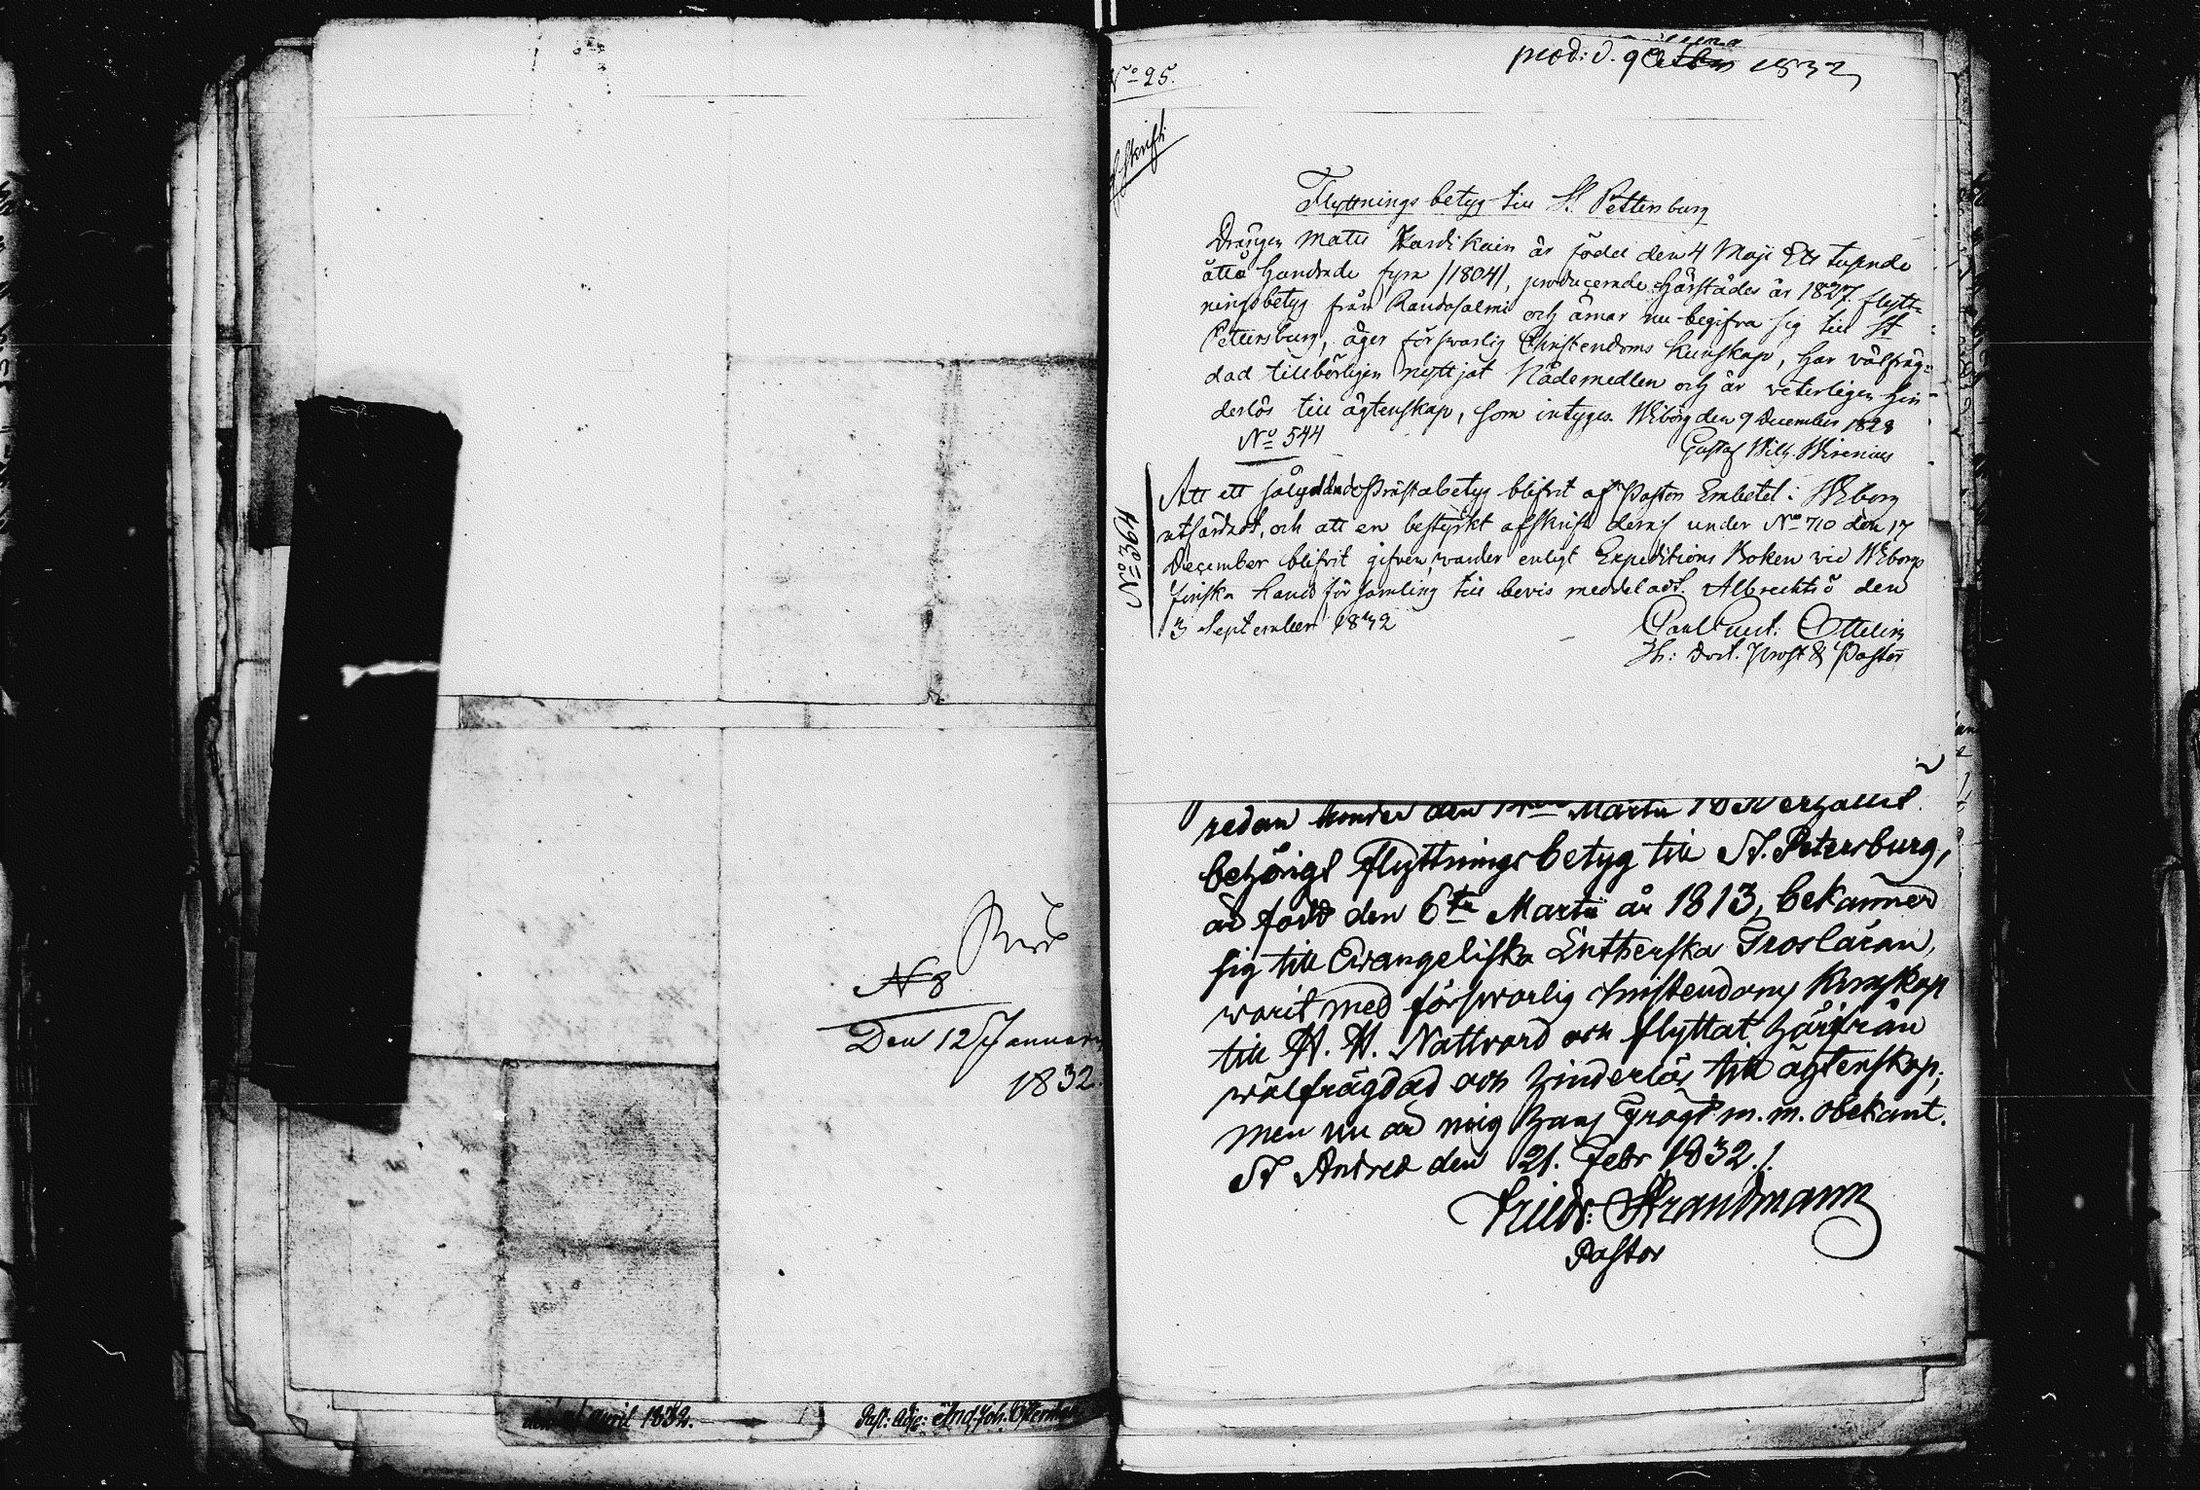 Russ
N 8
Den 12 Januari
1832.
april 1832.
Past: Adj: And. Joh. Österman
No 25.
prod: d. 9 1832
Afskrift
Flyttnings betyg till St. Pettersburg
Drängen Matts Kardikain är född den 4 Maji Ett tusende
åtta hundrade fyra /1804/, producerade härstädes år 1827 flytt-
ningsbetyg från Randasalmi och ämar nu begifva sig till St
Petersburg, äger försvarlig Christendoms kunskap, har välfräg-
dad tillbörligen nyttjat Nådemedlen och är veterligen hin-
derlös till ägtenskap, som intygas. Wiborg den 9 December 1828
Gustaf Wilh. Wirenius
No 544
No 364
Att ett sålydande Prästabetyg blifvit af Pastors Embetet i Wiborg
utfärdat, och att en bestyrkt afskrift deraf under No 710 den 17
December blifvit gifven, varder enligt Expeditions Boken vid Wiborgs
finska Landsförsamling till bevis meddeladt. Albrechtsö den
3 September 1832
Ottelin
Th: Doct. Prost & Pastor
redan den Martii erhållit
behörigt flyttningsbetyg till St. Petersburg,
är född den 6te Martii år 1813, bekänner
sig till Evangeliska Lutherska Trosläran,
warit med försvarlig christendoms kunskap
till H. H. Nattvard och flyttat härifrån
wälfrägdad och hinderlös till ägtenskap;
men nu är mig hans frägd m. m. obekant.
St Andreæ den 21. Febr 1832./.
Friedr: Strandmann
Pastor